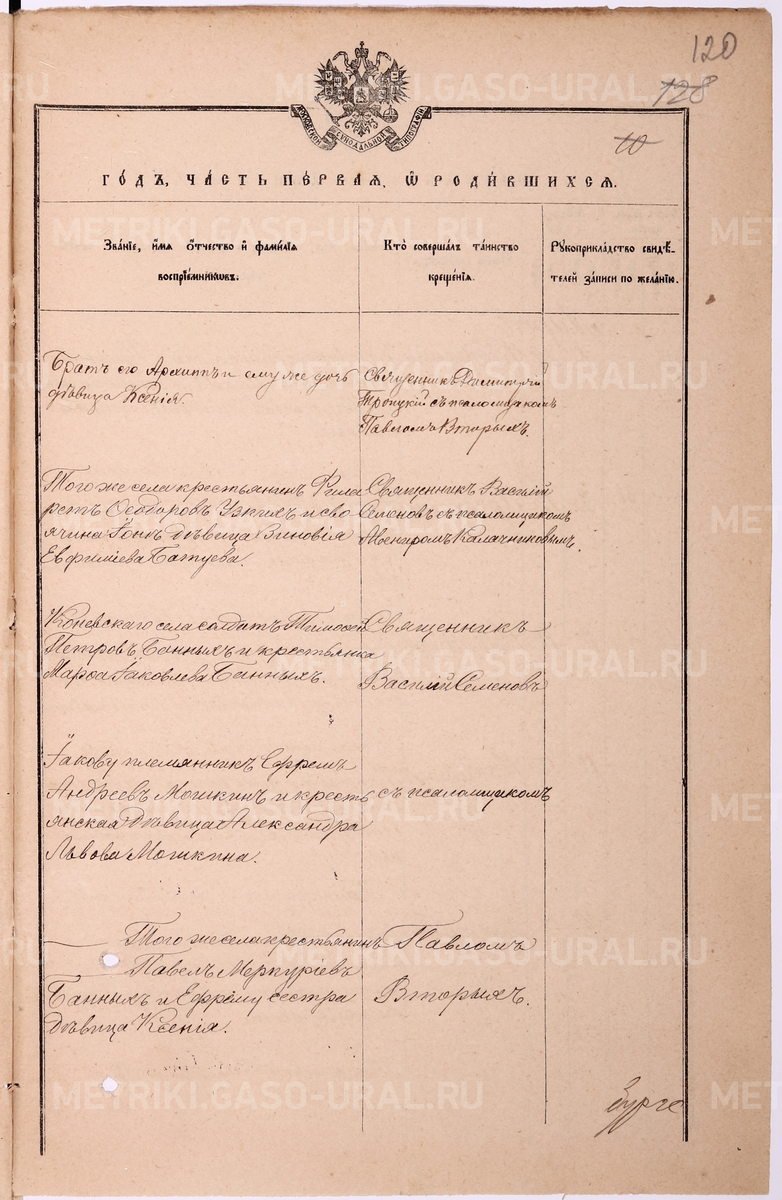 120
128
10
МОСКОВСКОЙ СѴНОДАЛЬНОЙ ТИПОГРАФІИ
ГО́ДЪ, ЧА́СТЬ ПЕ́РВАЯ, Ѿ РОДИ́ВШИХСЯ.
Зва́ніе, и́мя о́тчество и҆ фами́лія
воспріе́мниковъ.
Кто̀ соверша́лъ та́инство
креще́нія.
Рꙋкоприкла́дство свидѣ́-
телей за́писи по жела́нію.
Братъ его Архиппъ и ему же дочь
дѣвица Ксенія.
Священникъ Димитрій
Троицкій съ псаломщикомъ
Павломъ Вторыхъ.
Того же села крестьянинъ Фила
ретъ Ѳеодоровъ Узкихъ и сво
ячина дѣвица Зиновія
Евфиміева Батуева.
Священникъ Василій
Семеновъ съ псаломщикомъ
Авениромъ Калачниковымъ.
Коневскаго села солдатъ Тимоѳей
Петровъ Банныхъ и крестьянка
Марѳа Іаковлева Банныхъ.
Священникъ
Василій Семеновъ
Іакову племянникъ Ефремъ
Андреевъ Мошкинъ и кресть
янская дѣвица Александра
Львова Мошкина.
съ псаломщикомъ
Того же села крестьянинъ
Павелъ Меркуріевъ
Банныхъ и Ефрему сестра
дѣвица Ксенія.
Павломъ
Вторыхъ.
METRIKI.GASO-URAL.RU